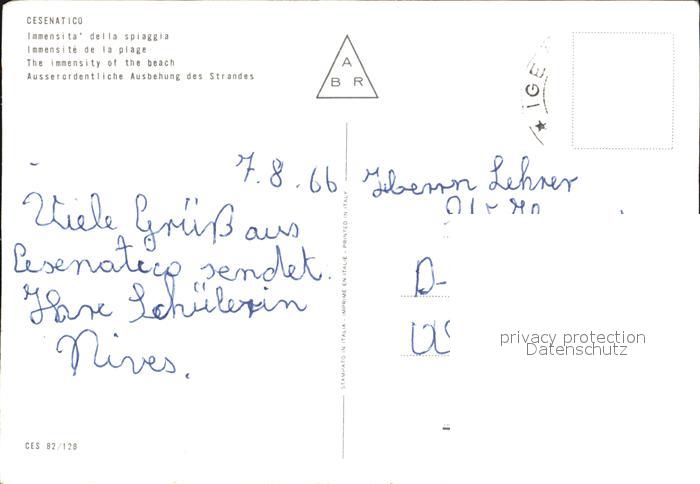 CESENATICO
Immensita' della spiaggia
Immensité de la plage
The immensity of the beach
Ausserordentliche Ausbehung des Strandes
A
B R
* IGE
7.8.66
Viele Grüß aus
Cesenatico sendet.
Ihre Schülerin
Nives.
Herrn Lehrer
D-
STAMPATO IN ITALIA - IMPRIMÉ EN ITALIE - PRINTED IN ITALY
privacy protection
Datenschutz
CES 82/128